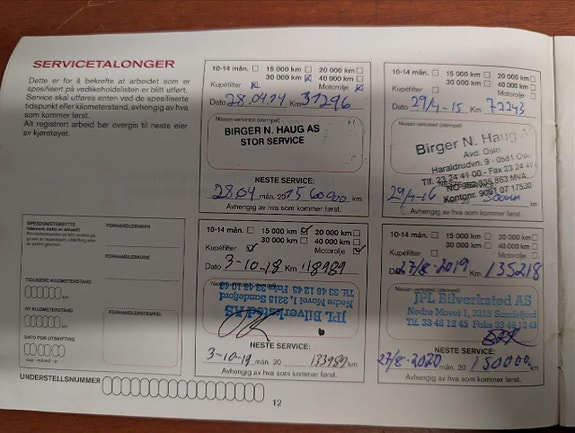 SERVICETALONGER
Dette er for å bekrefte at arbeidet som er
spesifisert på vedlikeholdslisten er blitt utført.
Service skal utføres enten ved de spesifiserte
tidspunkt eller kilometerstand, avhengig av hva
som kommer først.
Alt registrert arbeid bør overgis til neste eier
av kjøretøyet.
10-14 mån. 15 000 km 20 000 km
30 000 km 40 000 km
Kupéfilter Motorolje
Dato 28.0414 Km 31296
Nissan-verksted (stempel)
BIRGER N. HAUG AS
STOR SERVICE
NESTE SERVICE:
28.04 mån. 20 15 60000 km
Avhengig av hva som kommer først.
10-14 mån. 15 000 km 20 000 km
30 000 km 40 000 km
Kupéfilter Motorolje
Dato 29/4-15 Km 72243
Nissan-verksted (stempel)
Birger N. Haug AS
Avd. Oslo
Haraldrudvn. 9 - 0581 Oslo
Tlf. 23 24 41 00 - Fax 23 24 41
Kontonr. 9001 07 17530
29/4-16 km
Avhengig av hva som kommer først.
SPEEDOMETERBYTTE
FORHANDLERNAVN
TIDLIGERE KILOMETERSTAND
FORHANDLERKODE
NY KILOMETERSTAND
FORHANDLERSTEMPEL
DATO FOR UTSKIFTING
UNDERSTELLSNUMMER
10-14 mån. 15 000 km 20 000 km
30 000 km 40 000 km
Kupéfilter Motorolje
Dato 3-10-18 Km 118989
Nissan-verksted (stempel)
JPL Bilverksted AS
Nedre Movei 1, 3215 Sandefjord
Tlf. 33 46 12 45 Faks 33 46 10 43
NESTE SERVICE:
3-10-19 mån. 20 133989 km
Avhengig av hva som kommer først.
10-14 mån. 15 000 km 20 000 km
30 000 km 40 000 km
Kupéfilter Motorolje
Dato 27/8-2019 Km 135218
Nissan-verksted (stempel)
JPL Bilverksted AS
Nedre Movei 1, 3215 Sandefjord
Tlf. 33 46 12 45 Faks 33 46 10 43
NESTE SERVICE:
27/8-2020 mån. 20 150000 km
Avhengig av hva som kommer først.
12